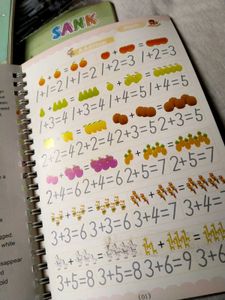 SANK
+ = + =
1+1=2 1+1=2 1+2=3 1+2=3
+ = + =
1+3=4 1+3=4 1+4=5 1+4=5
+ = + =
2+2=4 2+2=4 2+3=5 2+3=5
+ = + =
2+4=6 2+4=6 2+5=7 2+5=7
+ = + =
3+3=6 3+3=6 3+4=7 3+4=
+ = + =
3+5=8 3+5=8 3+6=9 3+6
(01)